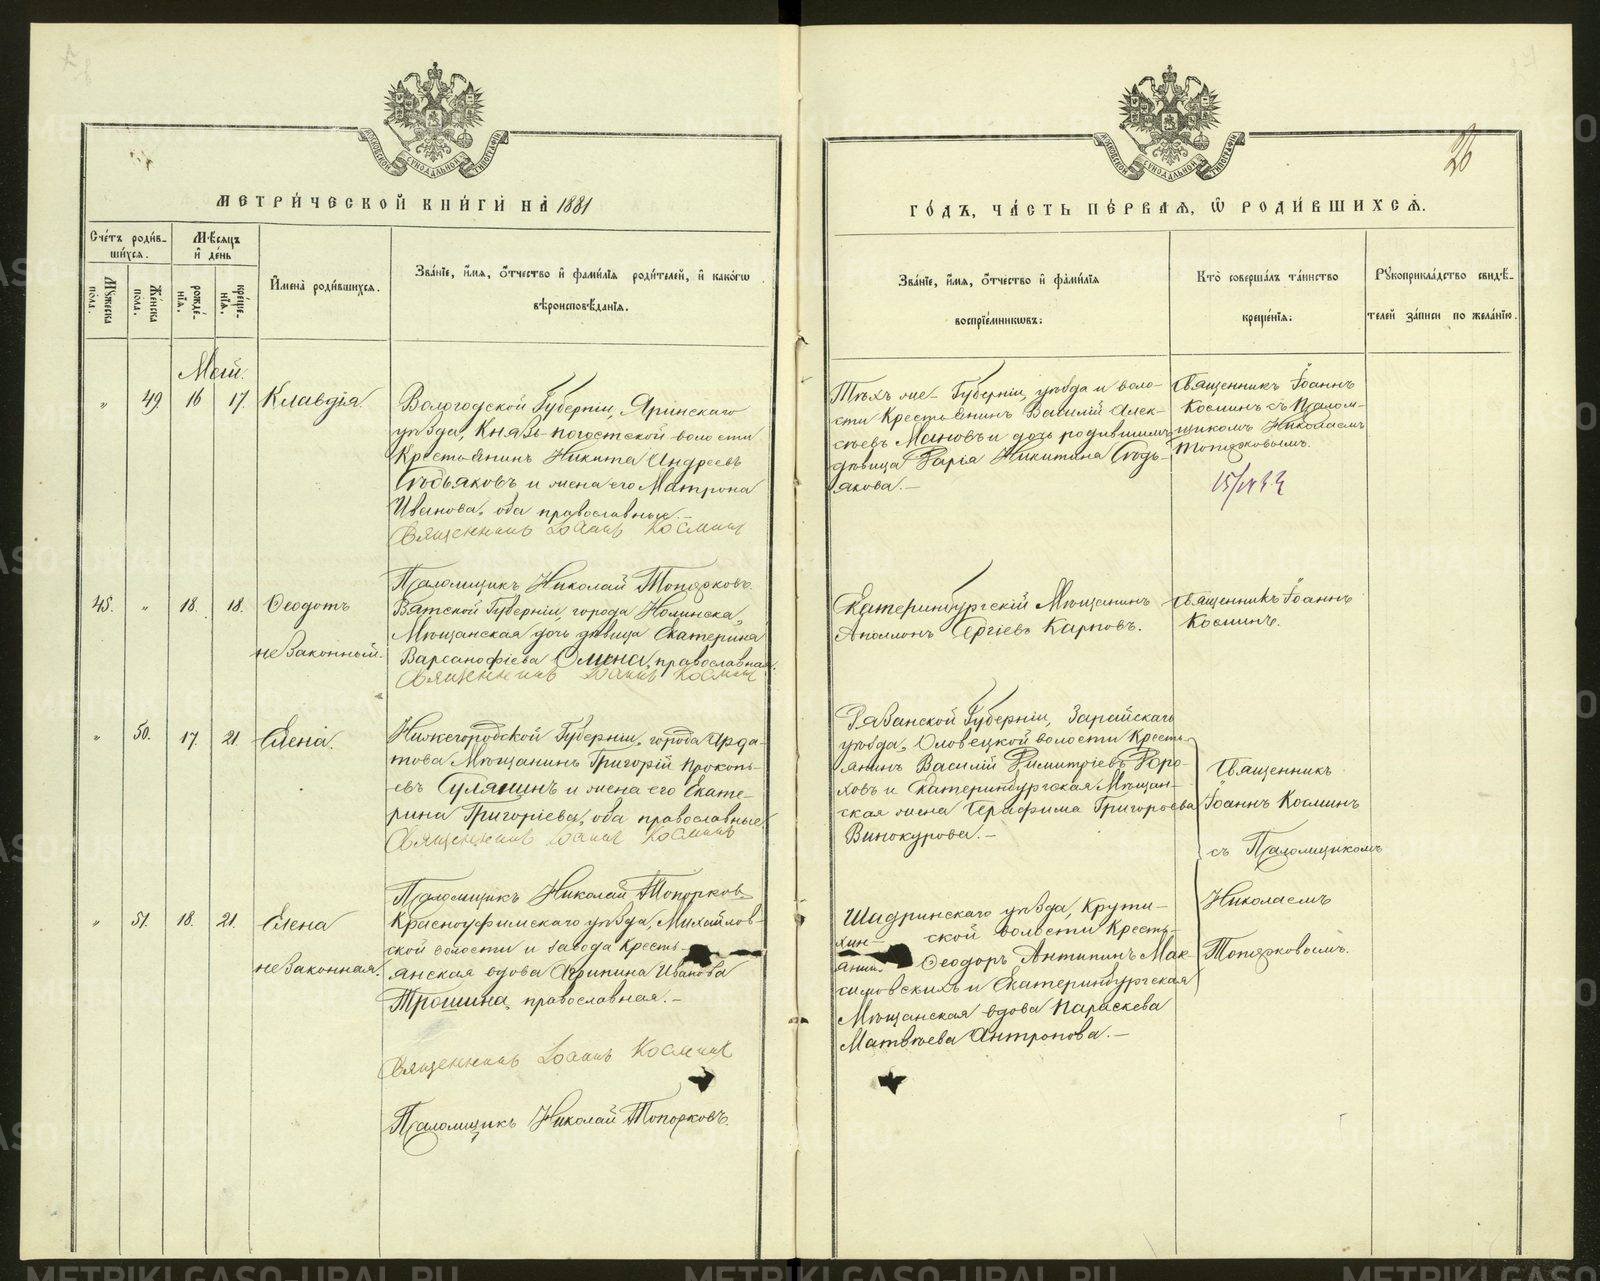 26
МОСКОВСКОЙ СѴНОДАЛЬНОЙ ТИПОГРАФІИ
МОСКОВСКОЙ СѴНОДАЛЬНОЙ ТИПОГРАФІИ
МЕТРИ́ЧЕСКОЙ КНИ́ГИ НА̀ 1881
ГО́ДЪ, ЧА́СТЬ ПЕ́РВАЯ, Ѡ РОДИ́ВШИХСЯ.
Сче́тъ роди́в-
ши́хся.
Му́жеска пола.
Же́нска пола.
Мѣ́сяцъ
и҆ де́нь
рожде́-
нїя.
креще́-
нїя.
И҆мена̀ роди́вшихся.
Зва́нїе, и҆́мя, ѻ҆́тчество и҆ фами́лїя роди́телей, и҆ како́гѡ
вѣроисповѣ́данїя.
Зва́нїе, и҆́мя, ѻ҆́тчество и҆ фами́лїя
воспрїе́мникѡвъ:
Кто̀ соверша́лъ та́инство
креще́нїя:
Рꙋкоприкла́дство свидѣ́-
телей за́писи по жела́нїю.
Май.
" 49. 16 17. Клавдія.
Вологодской Губерніи, Яринскаго
уѣзда, Князь-погостской волости
Крестьянинъ Никита Андреевъ
и жена его Матрона
Иванова, оба православные.
Священникъ Іоаннъ Косминъ
Псаломщикъ Николай Топорковъ.
Тѣхъ же Губерніи, уѣзда и воло-
сти Крестьянинъ Василій Алек-
сѣевъ Мановъ и дочь родившихъ
дѣвица Дарія Никитина
якова.–
Священникъ Іоаннъ
Косминъ съ Псалом-
щикомъ Николаемъ
Топорковымъ.
45. " 18. 18. Ѳеодотъ
не Законный.
Вятской Губерніи, города Нолинска,
Мѣщанская дочь дѣвица Екатерина
Варсанофіева православная.
Священникъ Іоаннъ Косминъ
Екатеринбургскій Мѣщанинъ
Аполлонъ Сергіевъ Карповъ.
Священникъ Іоаннъ
Косминъ.
" 50. 17. 21. Елена.
Нижегородской Губерніи, города Арда-
това Мѣщанинъ Григорій Прокопь-
евъ Гулянинъ и жена его Екате-
рина Григоріева, оба православные.
Священникъ Іоаннъ Косминъ
Псаломщикъ Николай Топорковъ
Рязанской Губерніи, Зарайскаго
уѣзда, Ловецкой волости Кресть-
янинъ Василій Димитріевъ Доро-
ховъ и Екатеринбургская Мѣщан-
ская жена Серафима Григорьева
Винокурова.–
Священникъ
Іоаннъ Косминъ
съ Псаломщикомъ
Николаемъ
Топорковымъ.
" 51. 18. 21. Елена
не Законная.
Красноуфимскаго уѣзда, Михайлов-
ской волости и завода Кресть-
янская вдова Агрипина Иванова
Трошина, православная.–
Священникъ Іоаннъ Косминъ
Псаломщикъ Николай Топорковъ.
Шадринскаго уѣзда, Крути-
хин- ской волости Кресть-
янин. Ѳеодоръ Антипинъ Мак-
симовскихъ и Екатеринбургская
Мѣщанская вдова Параскева
Матвѣева Антропова.–
METRIKI.GASO-URAL.RU